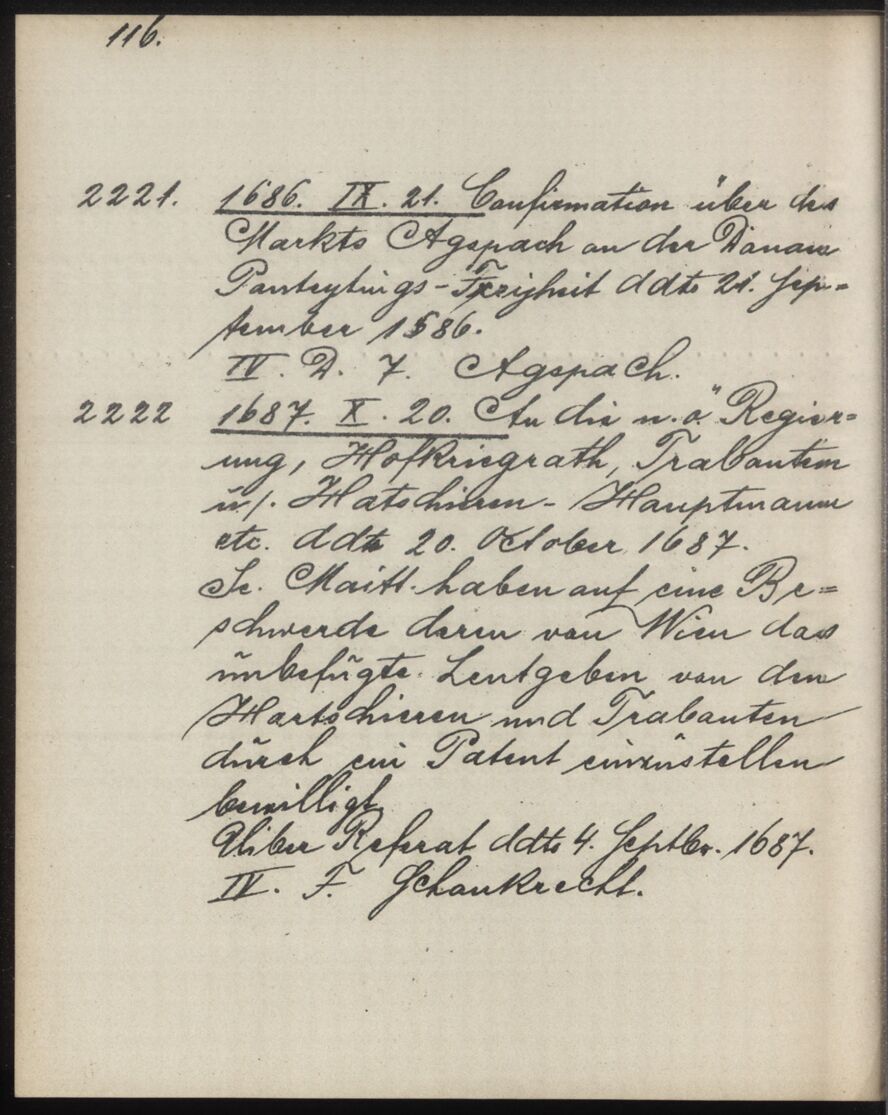 116.
2221. 1686. IX. 21. Confirmation über des
Markts Agspach an der Donau
Panteytings-Freiheit ddto 21. Sep=
tember 1586.
IV. D. 7. Agspach.
2222 1687. X. 20. An die n.ö. Regier=
ung, Hofkriegrath, Trabanten
u/. Hatschieren-Hauptmann
etc. ddto 20. October 1687.
Se. Maitt. haben auf eine Be=
schwerde deren von Wien das
unbefugte Leutgeben von den
Hartschieren und Trabanten
durch ein Patent einzustellen
bewilligt
Über Referat ddto 4. Septbr. 1687.
IV. F. Schankrecht.